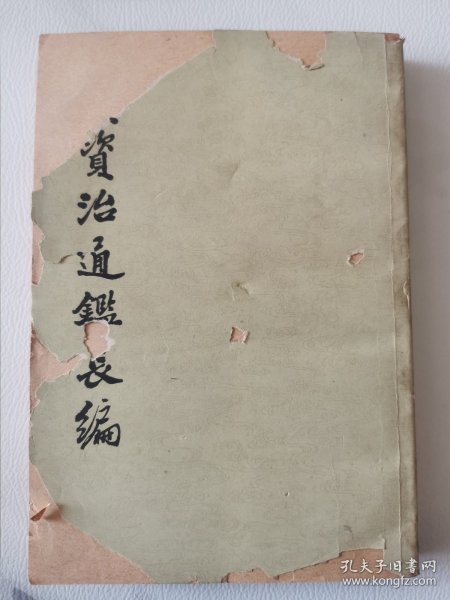 資治通鑑長編
孔夫子旧书网
www.kongfz.com